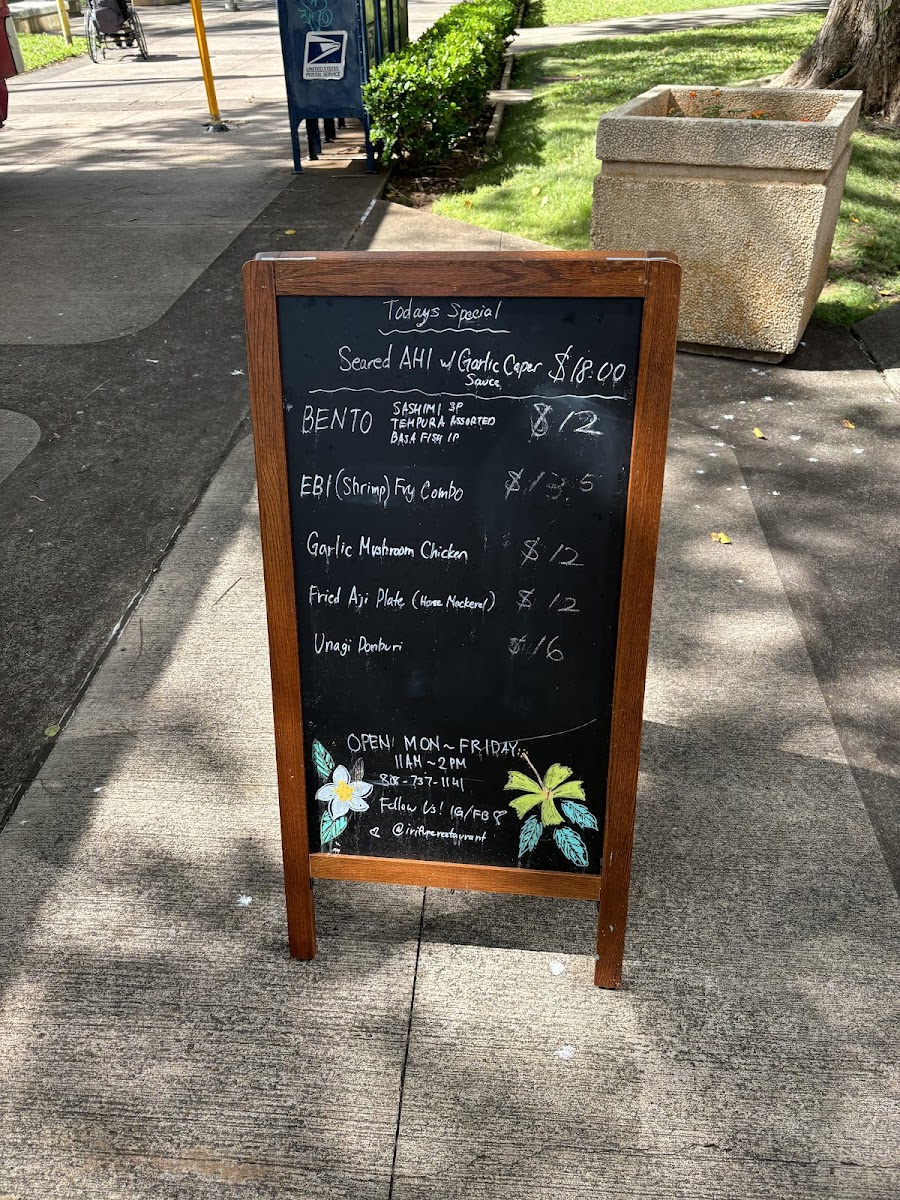 UNITED STATES
POSTAL SERVICE
Todays Special
Seared AHI w/ Garlic Caper $18.00
Sauce
BENTO SASHIMI 3P $12
TEMPURA ASSORTED
BASA FISH 1P
EBI (Shrimp) Fry Combo $13.5
Garlic Mushroom Chicken $12
Fried Aji Plate (Horse Mackerel) $12
Unagi Donburi $16
OPEN! MON~FRIDAY
11AM~2PM
808-737-1141
Follow Us! IG/FB